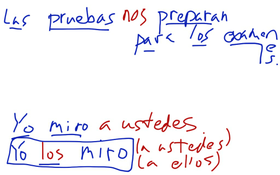 Las pruebas nos preparan
para los examen
es.
Yo miro a ustedes.
Yo los miro (a ustedes)
(a ellos)